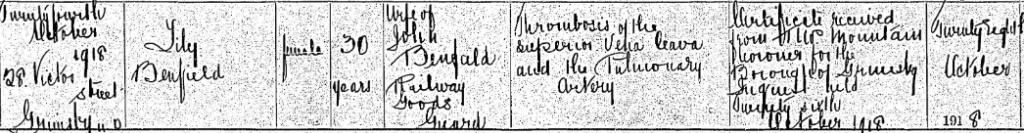 Twenty fourth
October
1918
28. Victor
Street
Grimsby U.D
Lily
Benfield
female
30
years
Wife of
John
Benfield
Railway
Goods
Guard
Thrombosis of the
superior Vena Cava
and the Pulmonary
Artery
Certificate received
from Mountain
Coroner for the
Borough of Grimsby
Inquest held
Twenty sixth
October 1918
Twenty Eighth
October
1918